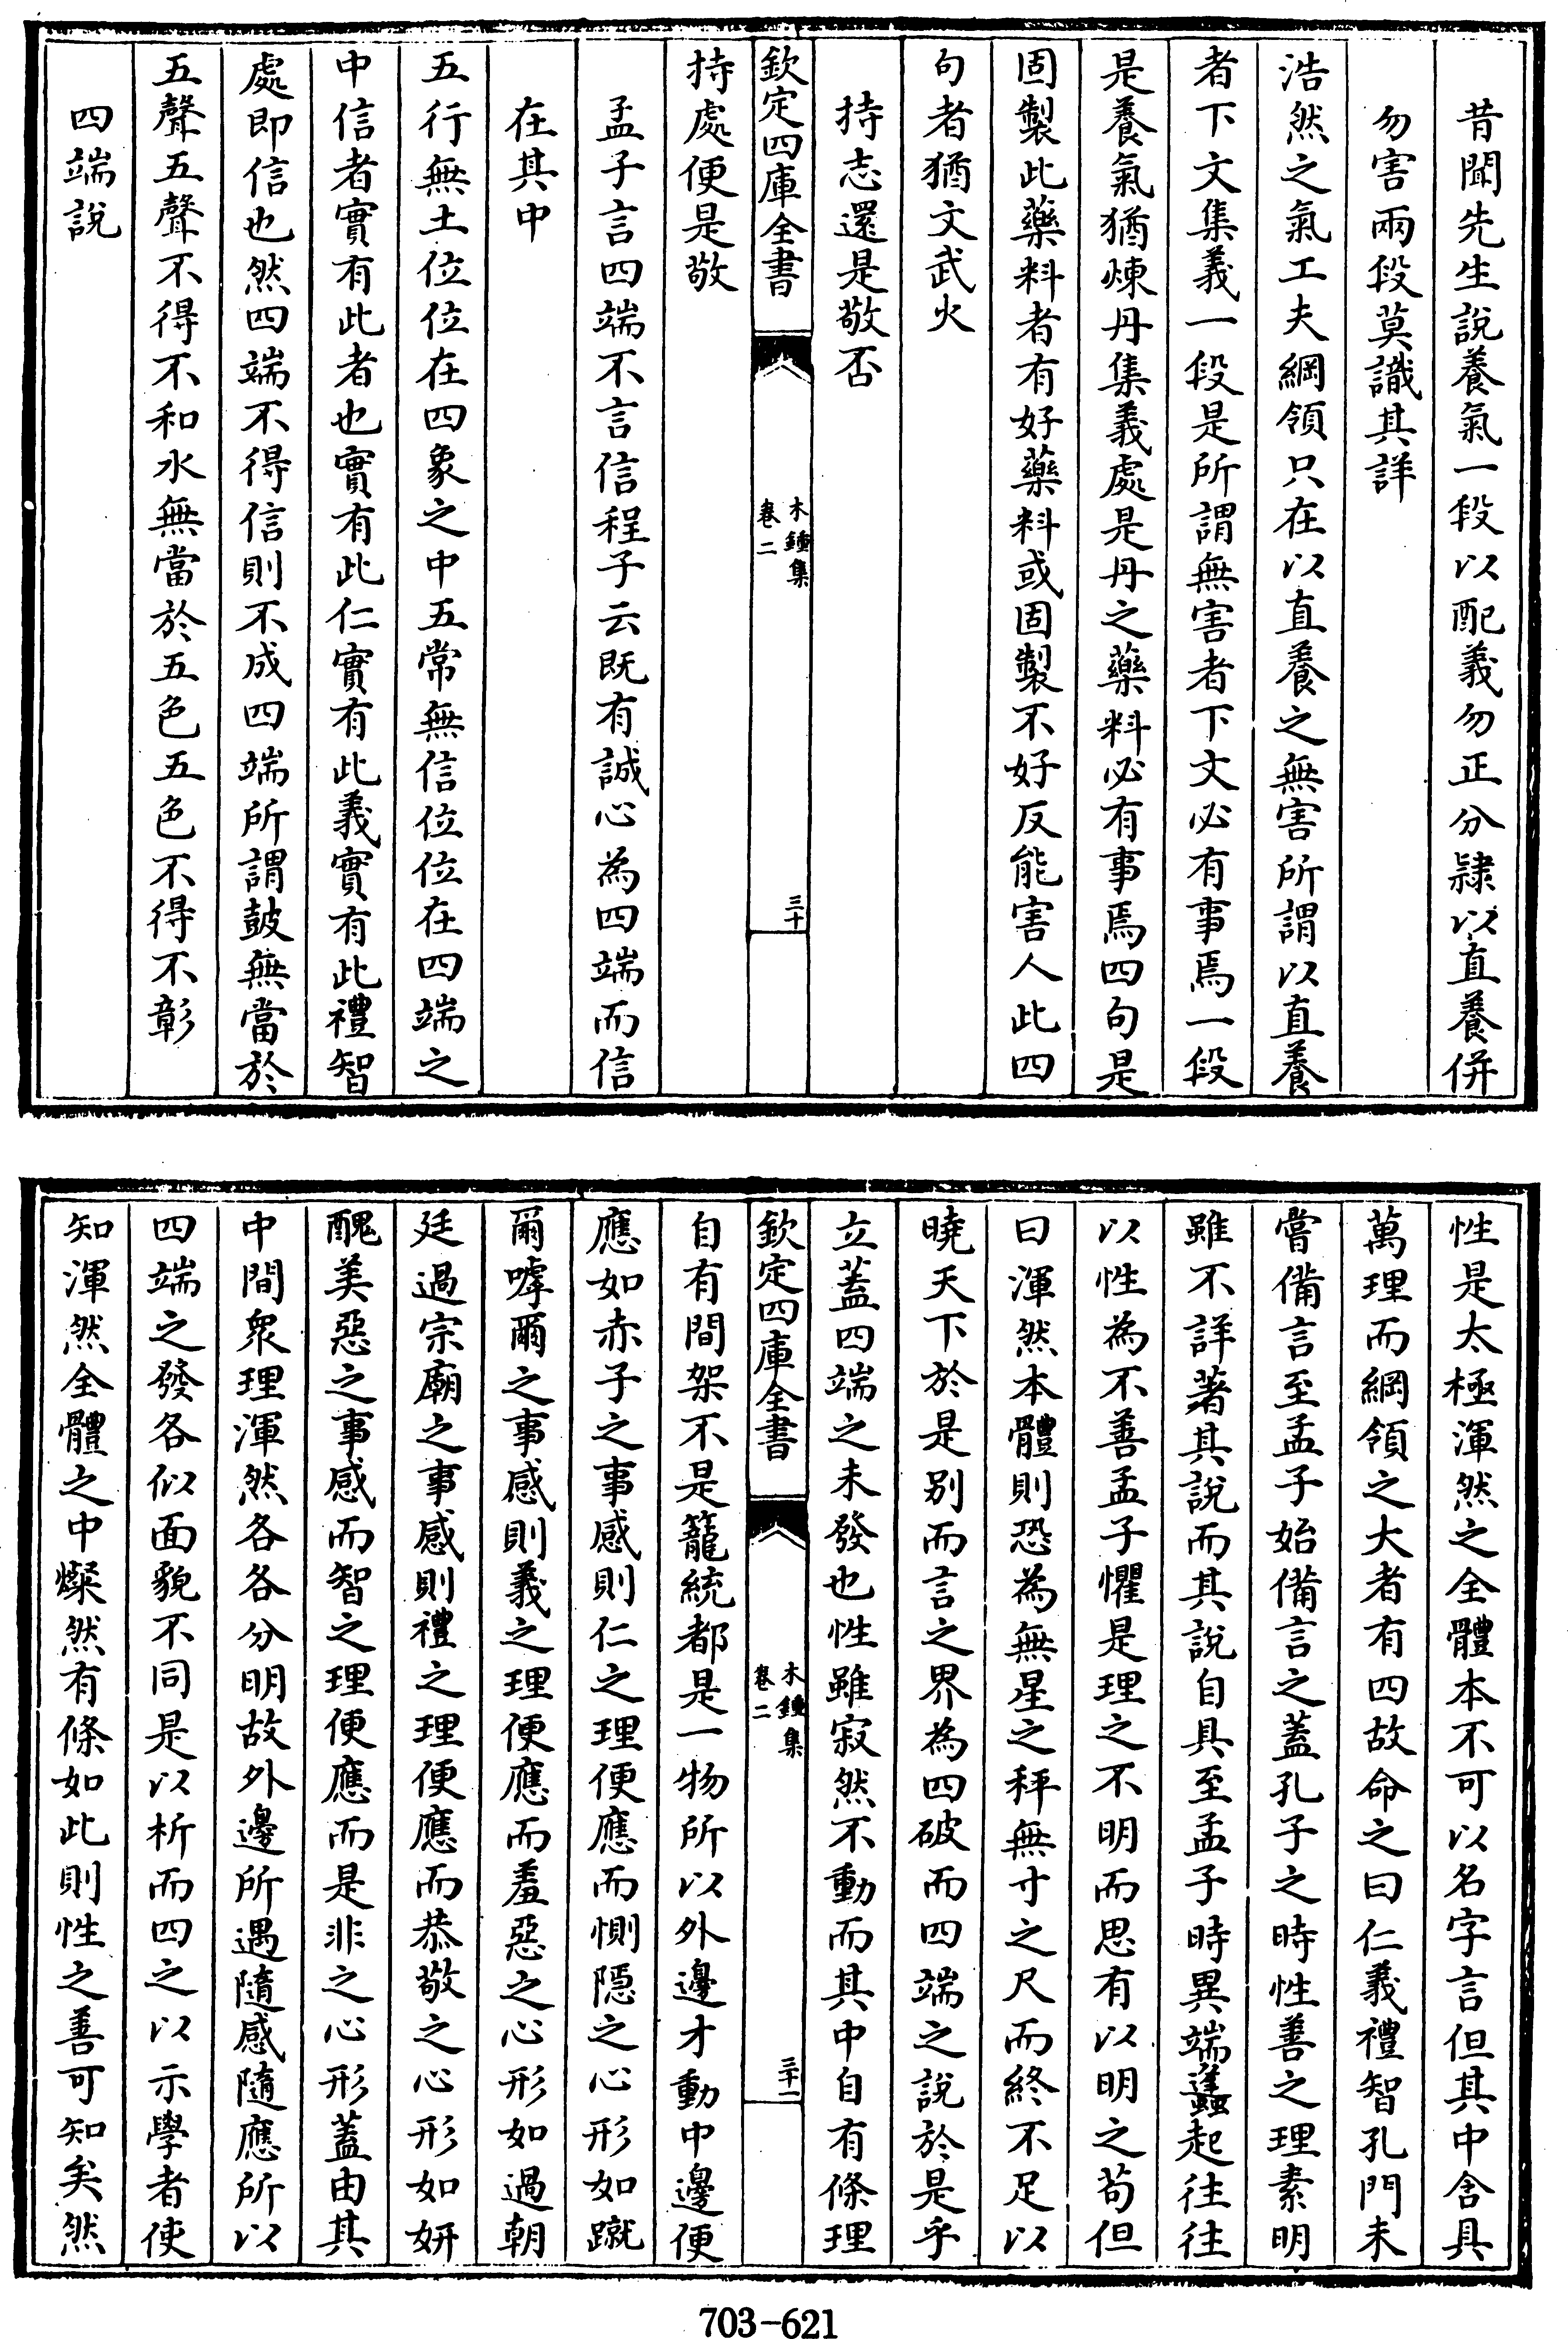 昔聞先生說養氣一段以配義勿正分隷以直養併
勿害兩段莫識其詳
浩然之氣工夫綱領只在以直養之無害所謂以直養
者下文集義一段是所謂無害者下文必有事焉一段
是養氣猶煉丹集義處是丹之藥料必有事焉四句是
固製此藥料者有好藥料或固製不好反能害人此四
句者猶文武火
持志還是敬否
欽定四庫全書
木鍾集
卷二
三十
持處便是敬
孟子言四端不言信程子云既有誠心為四端而信
在其中
五行無土位位在四象之中五常無信位位在四端之
中信者實有此者也實有此仁實有此義實有此禮智
處即信也然四端不得信則不成四端所謂鼓無當於
五聲五聲不得不和水無當於五色五色不得不彰
四端說
性是太極渾然之全體本不可以名字言但其中含具
萬理而綱領之大者有四故命之曰仁義禮智孔門未
嘗備言至孟子始備言之蓋孔子之時性善之理素明
雖不詳著其說而其說自具至孟子時異端蠭起往往
以性為不善孟子懼是理之不明而思有以明之茍但
曰渾然本體則恐為無星之秤無寸之尺而終不足以
曉天下於是别而言之界為四破而四端之說於是乎
立蓋四端之未發也性雖寂然不動而其中自有條理
欽定四庫全書
木鍾集
卷二
三十一
自有間架不是籠統都是一物所以外邊才動中邊便
應如赤子之事感則仁之理便應而惻隱之心形如蹴
爾嘑爾之事感則義之理便應而羞惡之心形如過朝
廷過宗廟之事感則禮之理便應而恭敬之心形如妍
醜美惡之事感而智之理便應而是非之心形蓋由其
中間衆理渾然各各分明故外邊所遇隨感隨應所以
四端之發各似面貌不同是以析而四之以示學者使
知渾然全體之中燦然有條如此則性之善可知矣然
703-621